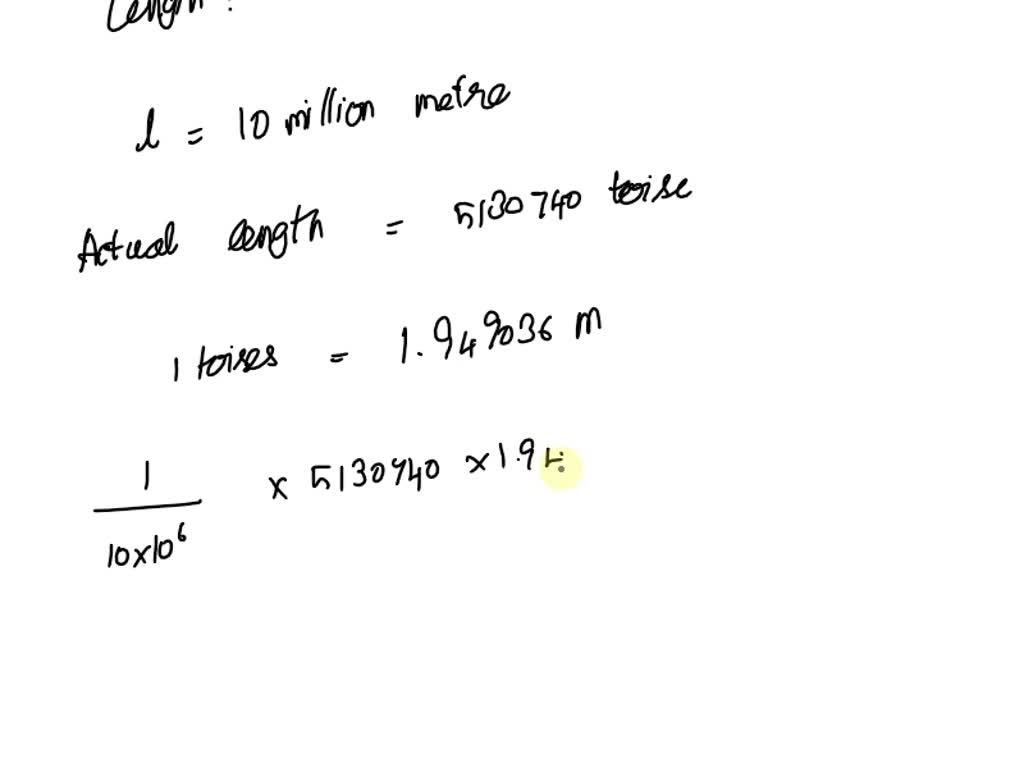 Length :
l = 10 million metre
Actual length = 5130740 toise
1 toises = 1.949036 m
1/10x10⁶ x 5130740 x 1.94